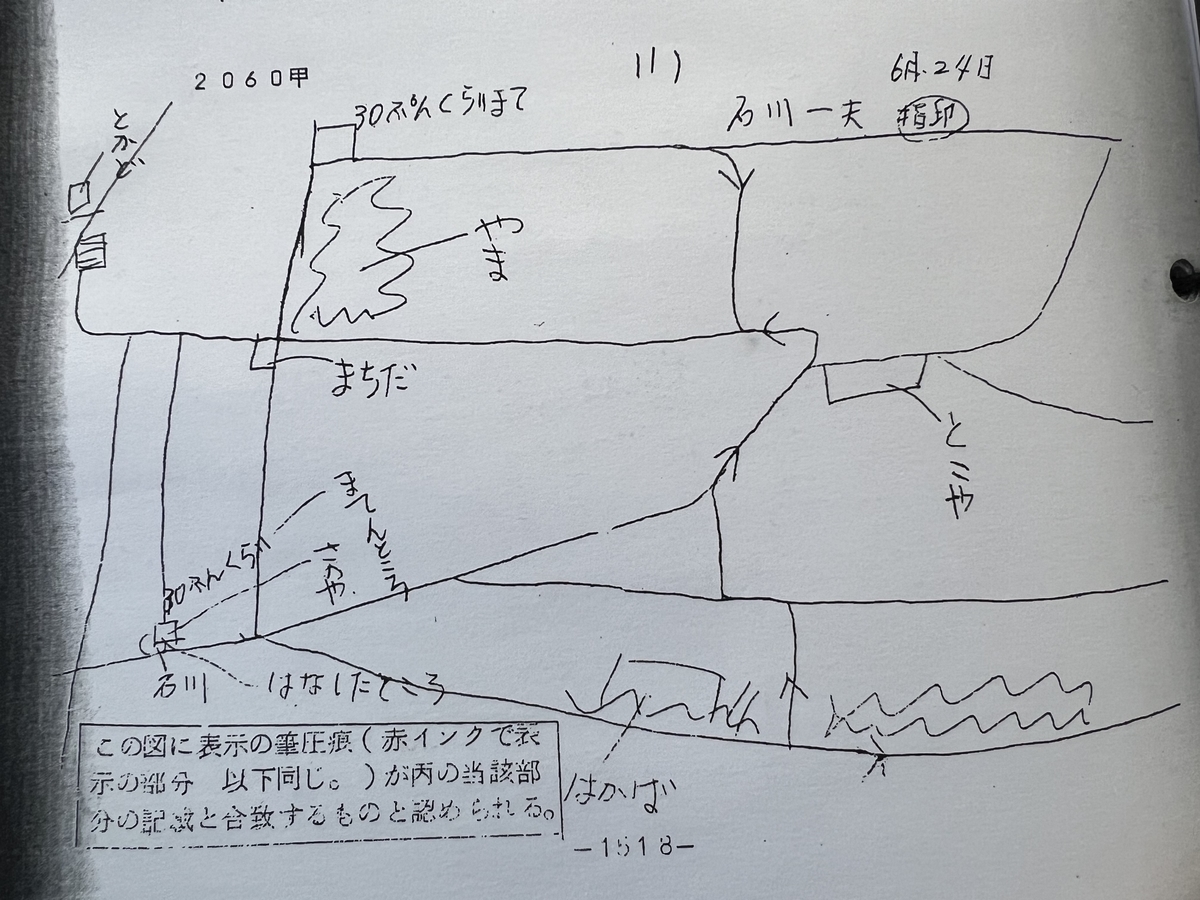 2060甲
(1)
6月.24日
石川一夫 指印
30ぷんくらいまて
とかど
やま
まちだ
とこや
まてんところ
30ふんくらい
さかや
石川
はなしたところ
はかば
この図に表示の筆圧痕(赤インクで表
示の部分 以下同じ。)が丙の当該部
分の記載と合致するものと認められる。
-1518-